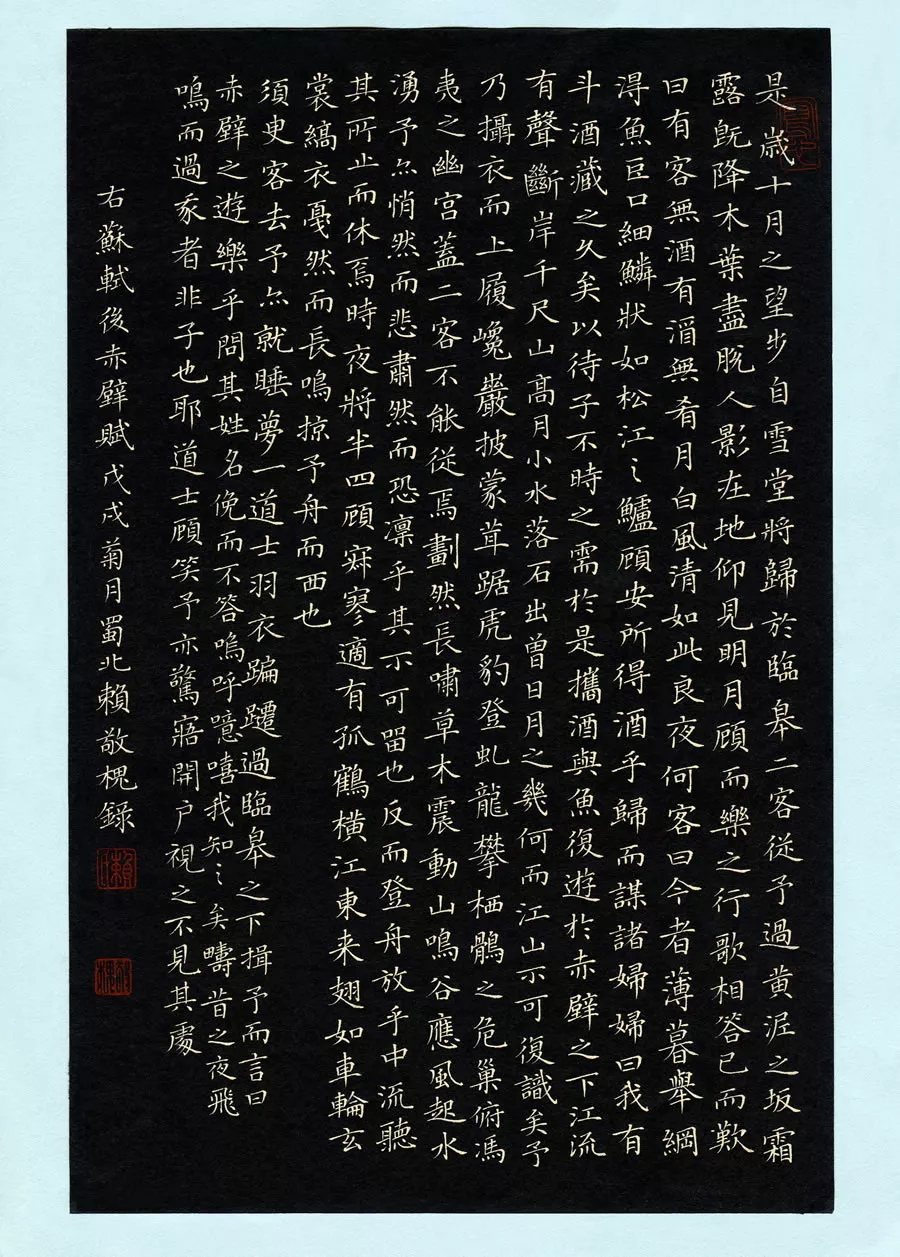 是歲十月之望步自雪堂將歸於臨皋二客從予過黄泥之坂霜
露既降木葉盡脫人影在地仰見明月顧而樂之行歌相答已而歎
曰有客無酒有酒無肴月白風清如此良夜何客曰今者薄暮舉網
得魚巨口細鱗狀如松江之鱸顧安所得酒乎歸而謀諸婦婦曰我有
斗酒藏之久矣以待子不時之需於是攜酒與魚復遊於赤壁之下江流
有聲斷岸千尺山高月小水落石出曾日月之幾何而江山不可復識矣予
乃攝衣而上履巉巖披蒙茸踞虎豹登虬龍攀栖鶻之危巢俯馮
夷之幽宮蓋二客不能從焉劃然長嘯草木震動山鳴谷應風起水
湧予亦悄然而悲肅然而恐凛乎其不可留也反而登舟放乎中流聽
其所止而休焉時夜將半四顧寂寥適有孤鶴横江東来翅如車輪玄
裳縞衣戛然而長鳴掠予舟而西也
須臾客去予亦就睡夢一道士羽衣蹁躚過臨皋之下揖予而言曰
赤壁之遊樂乎問其姓名俛而不答嗚呼噫嘻我知之矣疇昔之夜飛
鳴而過我者非子也耶道士顧笑予亦驚寤開户視之不見其處
右蘇軾後赤壁賦戊戌菊月蜀北賴敬槐錄